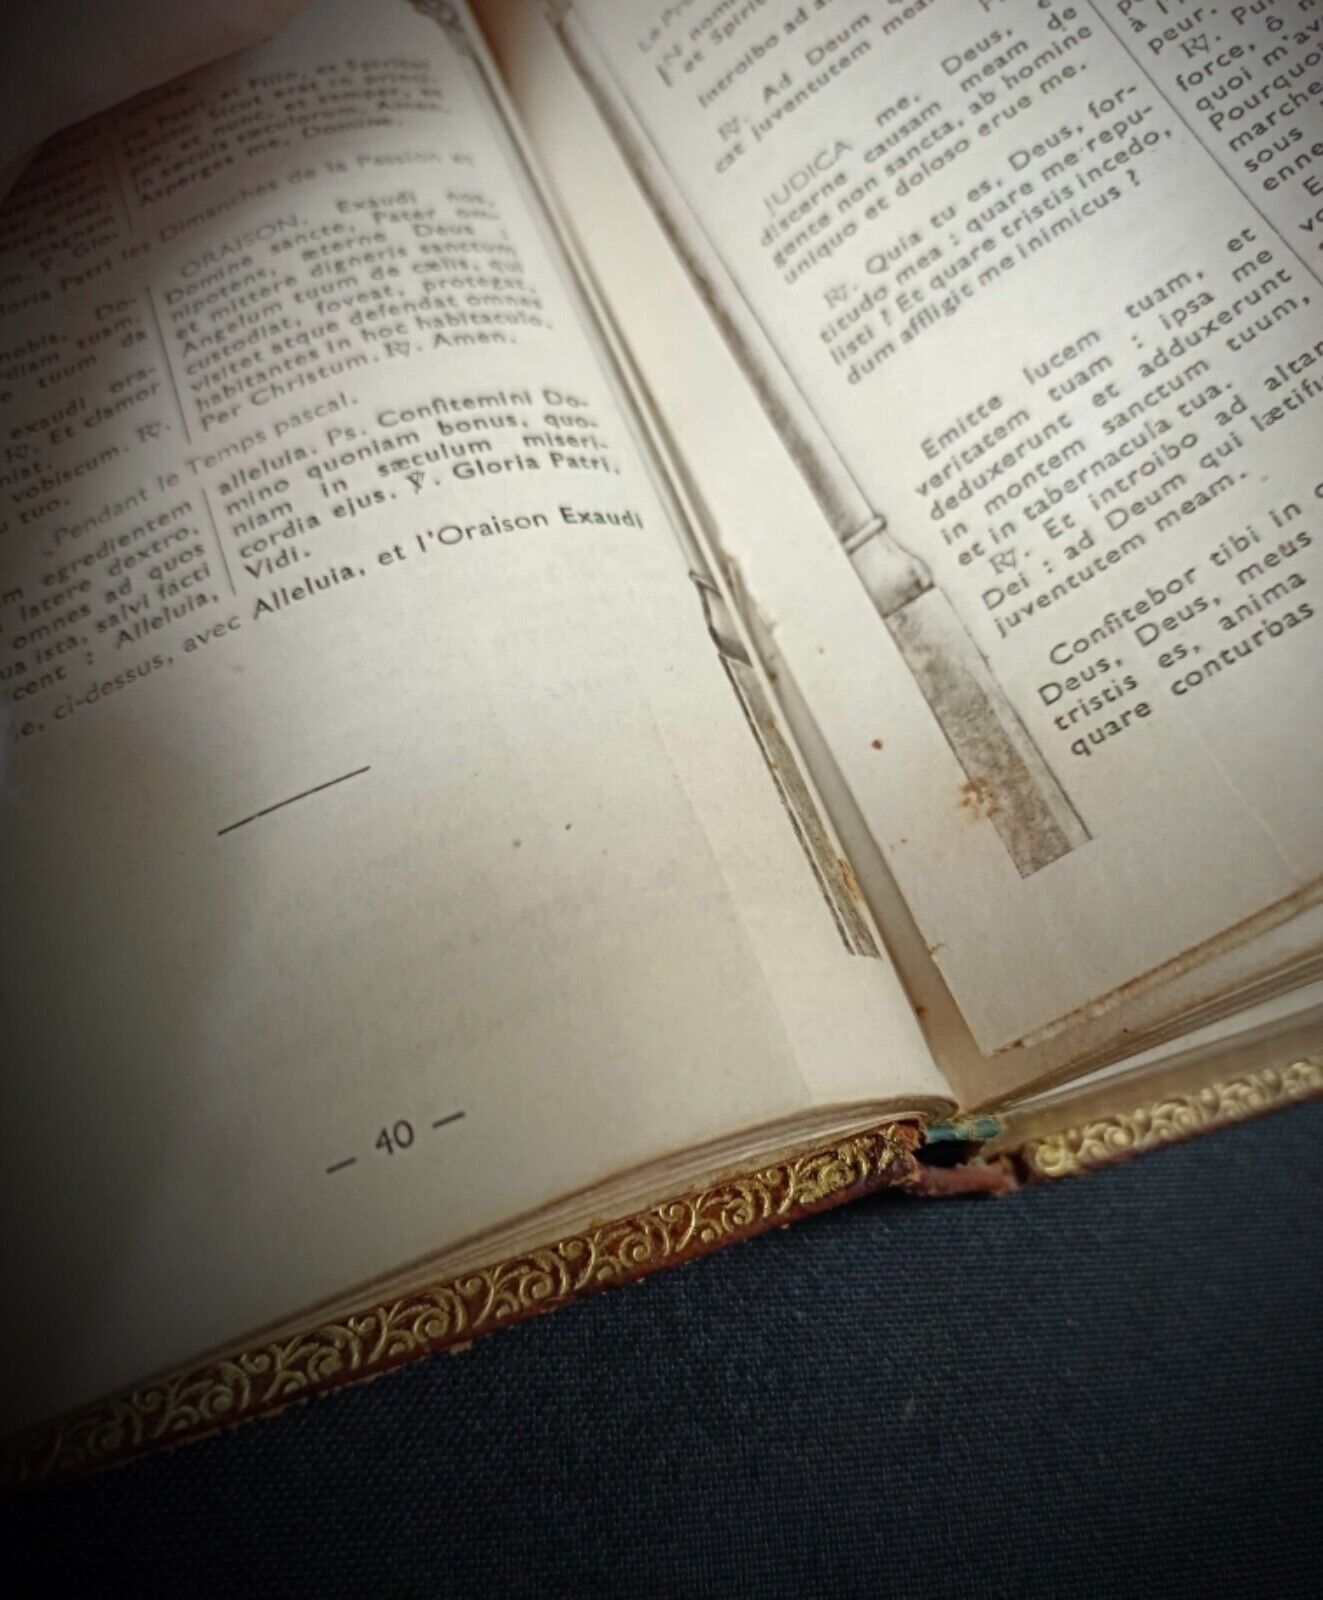 tria Patri, et Filio, et Spiritui
sancto. Sicut erat in princi-
pio, et nunc, et semper, et
in sæcula sæculorum. Amen.
Asperges me, Domine.
nivem
rere mei,
magnam
m. ℣. Glo-
loria Patri les Dimanches de la Passion et
nobis, Do-
rdiam tuam.
e tuum da
exaudi ora-
℟. Et clamor
niat.
vobiscum. ℟.
u tuo.
ORAISON. Exaudi nos,
Domine sancte, Pater om-
nipotens, æterne Deus :
et mittere digneris sanctum
Angelum tuum de cœlis, qui
custodiat, foveat, protegat,
visitet atque defendat omnes
habitantes in hoc habitaculo.
Per Christum. ℟. Amen.
Pendant le Temps pascal.
m egredientem
latere dextro,
omnes ad quos
ua ista, salvi facti
cent : Alleluia,
alleluia. Ps. Confitemini Do-
mino quoniam bonus, quo-
niam in sæculum miseri-
cordia ejus. ℣. Gloria Patri.
Vidi.
le, ci-dessus, avec Alleluia, et l'Oraison Exaudi
— 40 —
Le Pr
IN nomi
et Spirit
Introibo ad al
℟. Ad Deum
cat juventutem mean
JUDICA me, Deus,
discerne causam meam de
gente non sancta, ab homine
uniquo et doloso erue me.
℟. Quia tu es, Deus, for-
titudo mea : quare me repu-
listi ? Et quare tristis incedo,
dum affligit me inimicus ?
Emitte lucem tuam, et
veritatem tuam : ipsa me
deduxerunt et adduxerunt
in montem sanctum tuum,
et in tabernacula tua.
℟. Et introibo ad altar
Dei : ad Deum qui lætifi
juventutem meam.
Confitebor tibi in
Deus, Deus, meus
tristis es, anima
quare conturbas
à l'
peur.
℟. Pu
force, ô
quoi m'av
Pourquoi
marche
sous
enne